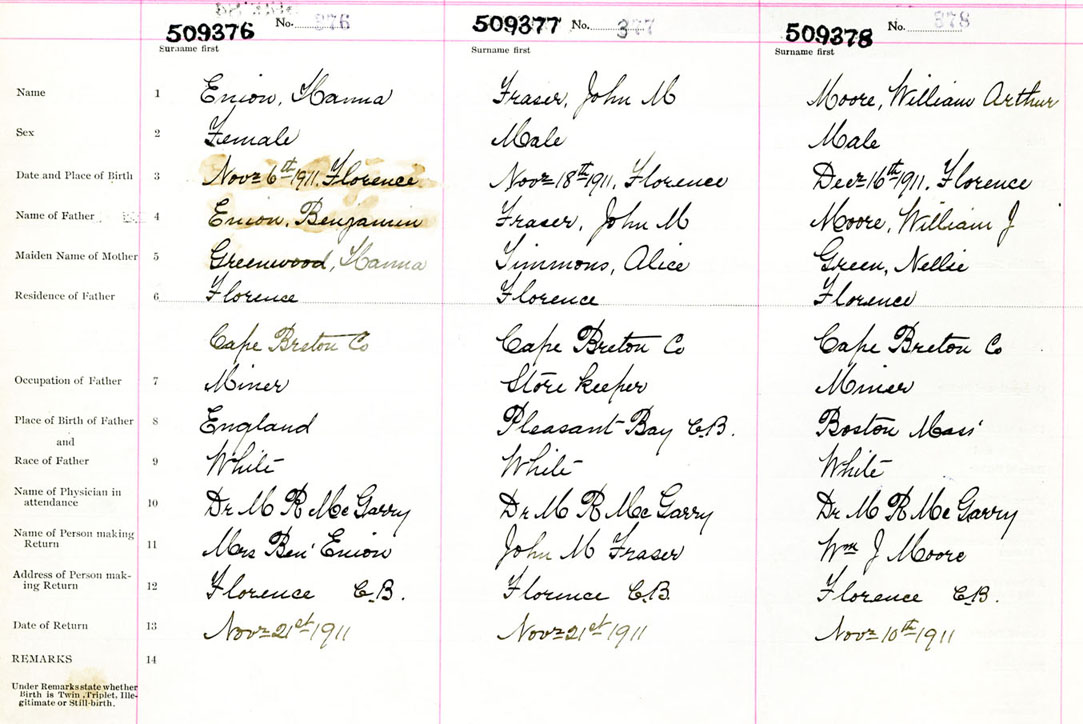 509376 No. 376 509377 No. 377 509378 No. 378
Surname first Surname first Surname first
Name 1 Enion, Hanna Fraser, John M Moore, William Arthur
Sex 2 Female Male Male
Date and Place of Birth 3 Novr 6th 1911. Florence Novr 18th 1911. Florence Decr 16th 1911. Florence
Name of Father 4 Enion, Benjamin Fraser, John M Moore, William J
Maiden Name of Mother 5 Greenwood, Hanna Timmons, Alice Green, Nellie
Residence of Father 6 Florence Florence Florence
Cape Breton Co Cape Breton Co Cape Breton Co
Occupation of Father 7 Miner Store keeper Miner
Place of Birth of Father 8 England Pleasant Bay C.B. Boston Mass
and
Race of Father 9 White White White
Name of Physician in
attendance 10 Dr M R McGarry Dr M R McGarry Dr M R McGarry
Name of Person making
Return 11 Mrs Ben' Enion John M Fraser Wm J Moore
Address of Person mak-
ing Return 12 Florence C.B. Florence C.B. Florence C.B.
Date of Return 13 Novr 21st 1911 Novr 21st 1911 Novr 10th 1911
REMARKS 14
Under Remarks state whether
Birth is Twin, Triplet, Ille-
gitimate or Still-birth.